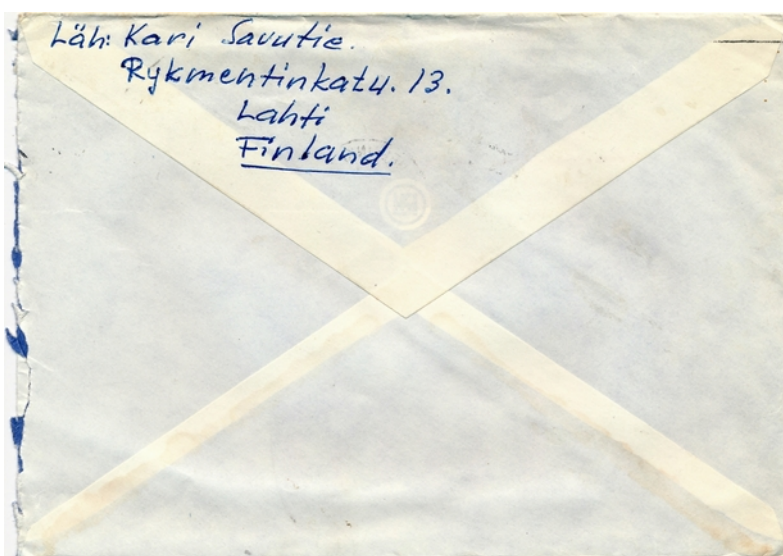 Läh: Kari Savutie.
Rykmentinkatu. 13.
Lahti
Finland.